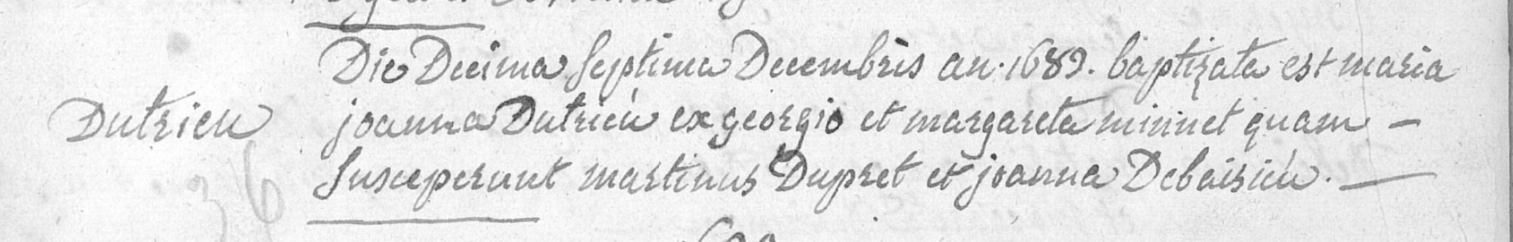 Die Decima Septima Decembris an. 1689. baptizata est maria
Dutrieu joanna Dutrieu ex georgio et margareta minnet quam —
Susceperunt martinus Dupret et joanna Debaisieu. —